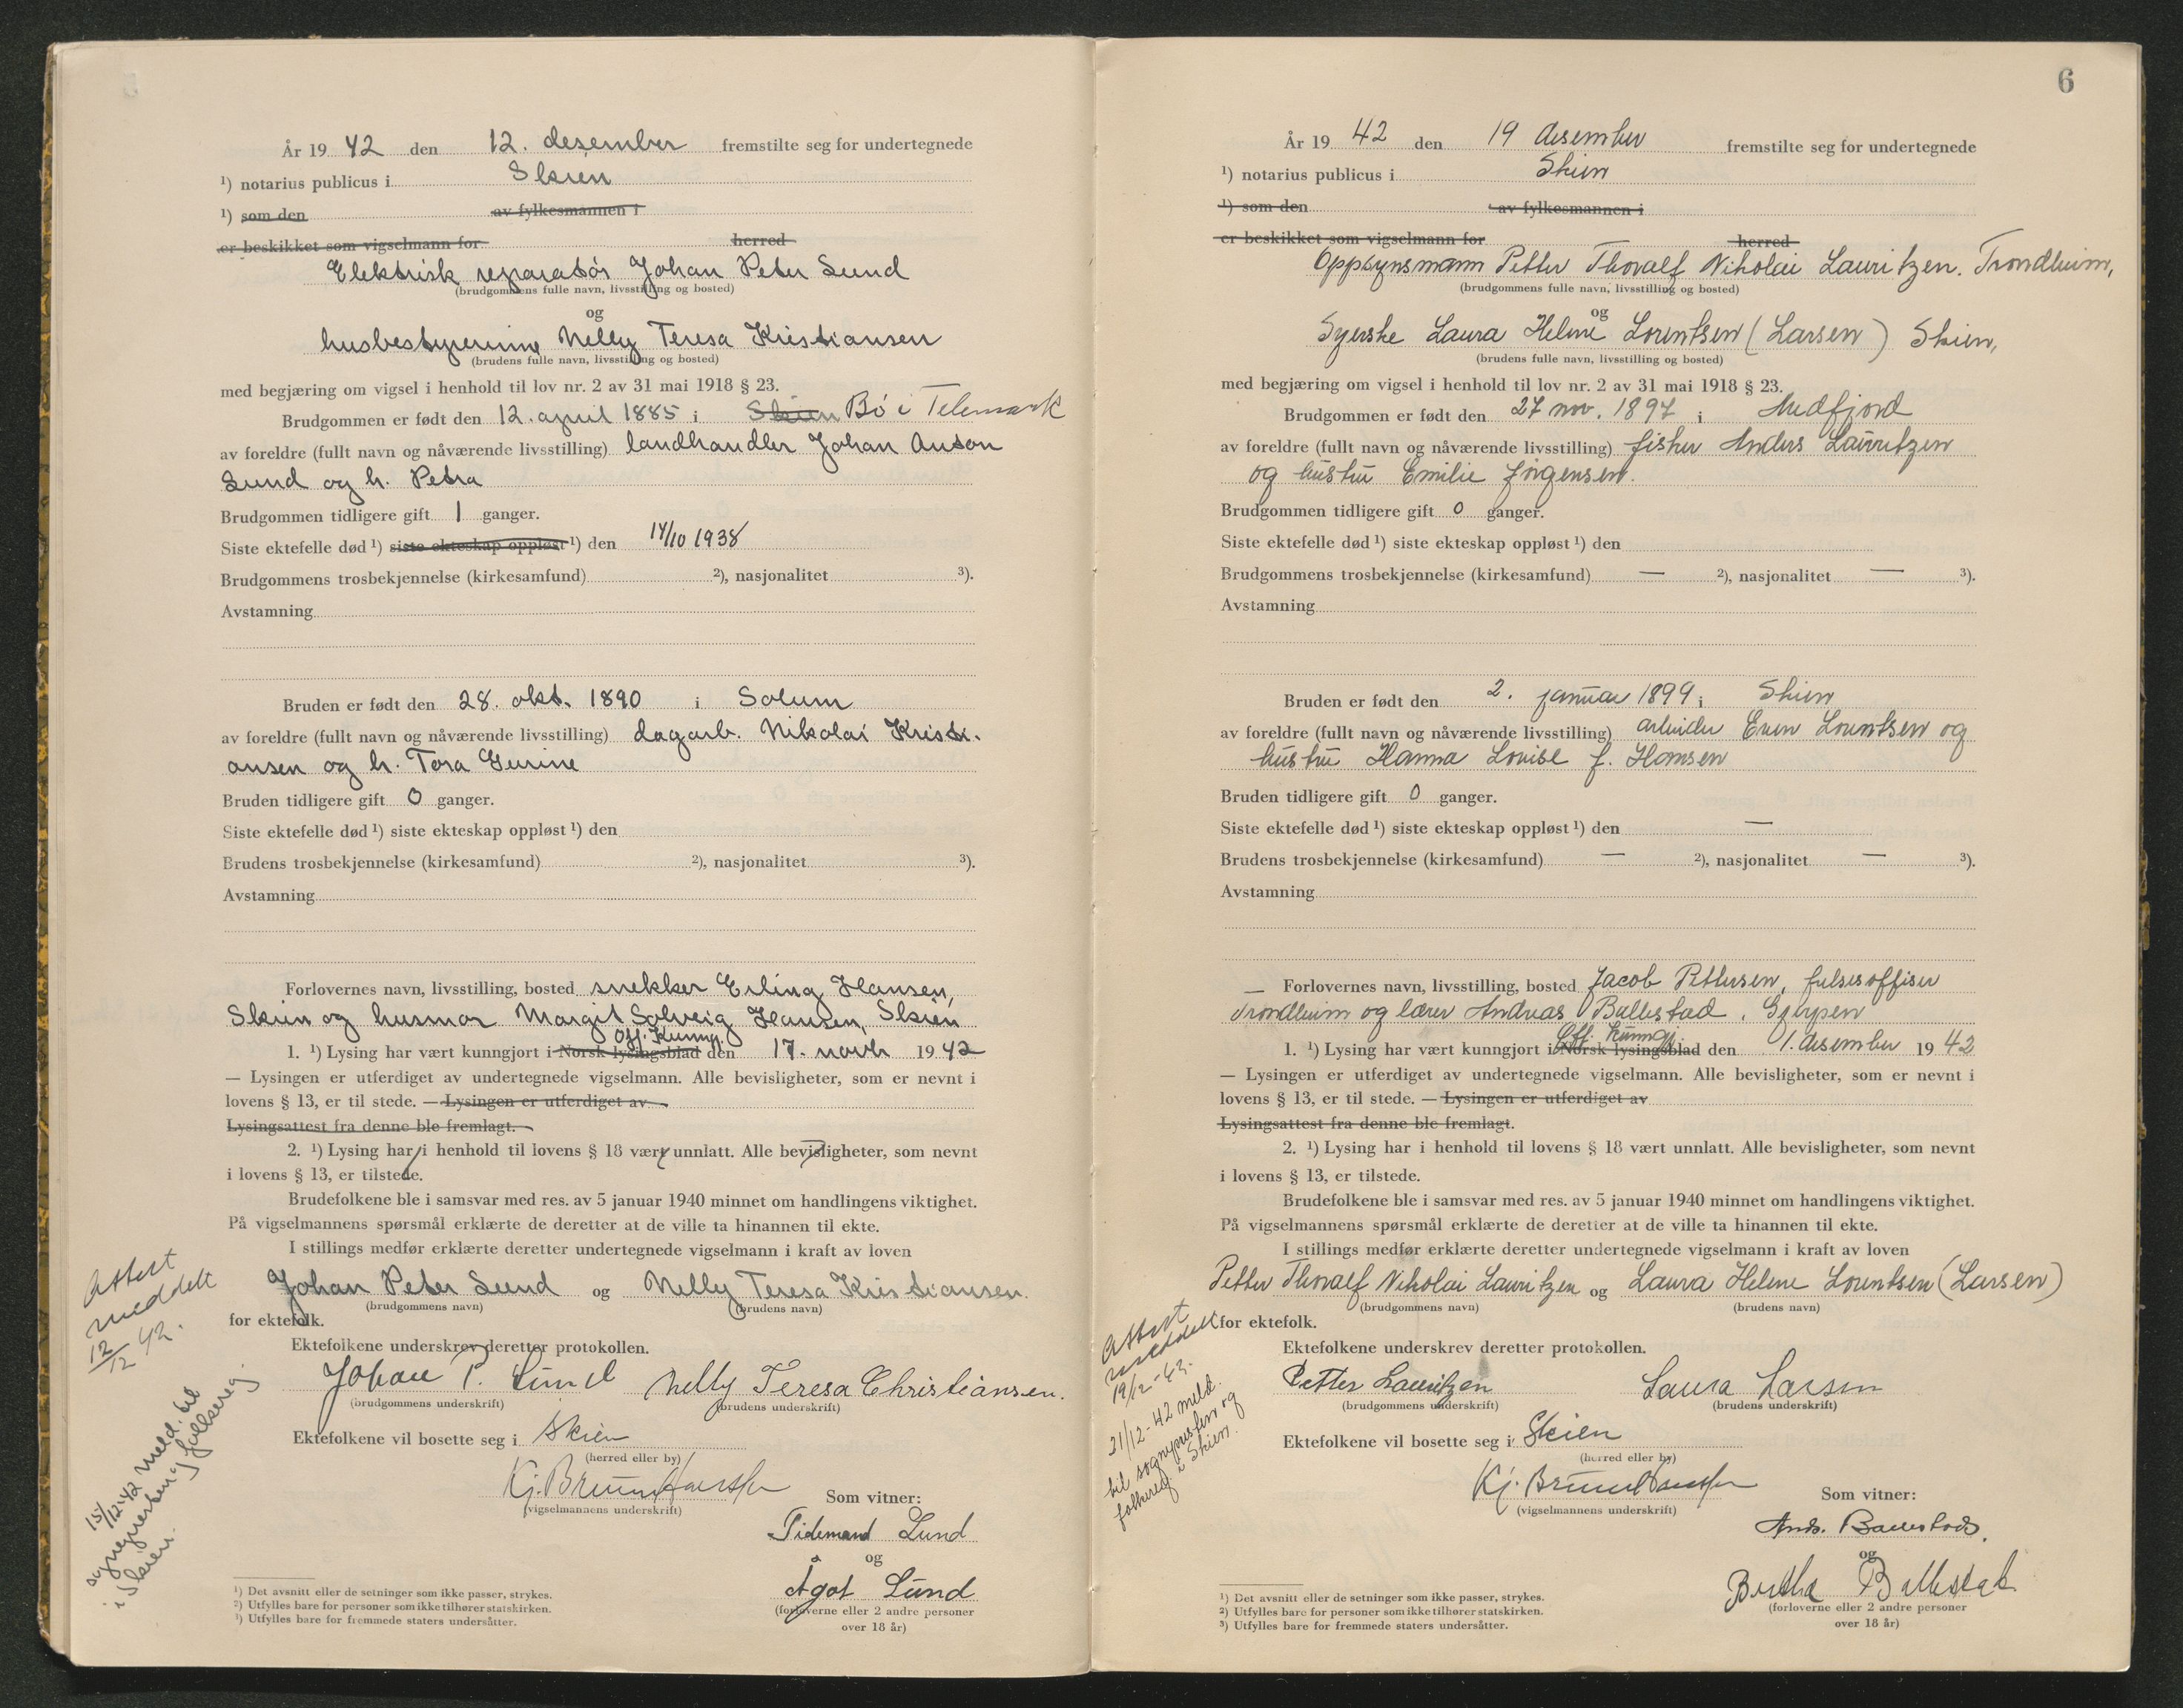 År 19 42 den 12. desember fremstilte seg for undertegnede
¹) notarius publicus i Skien
¹) som den av fylkesmannen i
er beskikket som vigselmann for herred
Elektrisk reparatør Johan Peter Lund
(brudgommens fulle navn, livsstilling og bosted)
og
husbestyrerinne Nelly Teresa Kristiansen
(brudens fulle navn, livsstilling og bosted)
med begjæring om vigsel i henhold til lov nr. 2 av 31 mai 1918 § 23.
Brudgommen er født den 12. april 1885 i Skien Bø i Telemark
av foreldre (fullt navn og nåværende livsstilling) landhandler Johan Anton
Lund og h. Petra
Brudgommen tidligere gift 1 ganger.
Siste ektefelle død ¹) siste ekteskap oppløst ¹) den 14/10 1938
Brudgommens trosbekjennelse (kirkesamfund) ²), nasjonalitet ³).
Avstamning
Bruden er født den 28. okt. 1890 i Solum
av foreldre (fullt navn og nåværende livsstilling) dagarb. Nikolai Kristi-
ansen og h. Tora Gurine
Bruden tidligere gift 0 ganger.
Siste ektefelle død ¹) siste ekteskap oppløst ¹) den
Brudens trosbekjennelse (kirkesamfund) ²), nasjonalitet ³).
Avstamning
Forlovernes navn, livsstilling, bosted snekker Erling Hansen,
Skien og husmor Margit Solveig Hansen, Skien
Off. Kunng.
1. ¹) Lysing har vært kunngjort i Norsk lysingsblad den 17. novb 19 42
— Lysingen er utferdiget av undertegnede vigselmann. Alle bevisligheter, som er nevnt i
lovens § 13, er til stede. — Lysingen er utferdiget av
Lysingsattest fra denne ble fremlagt.
2. ¹) Lysing har i henhold til lovens § 18 vært unnlatt. Alle bevisligheter, som nevnt
i lovens § 13, er tilstede.
Brudefolkene ble i samsvar med res. av 5 januar 1940 minnet om handlingens viktighet.
På vigselmannens spørsmål erklærte de deretter at de ville ta hinannen til ekte.
I stillings medfør erklærte deretter undertegnede vigselmann i kraft av loven
Johan Peter Lund og Nelly Teresa Kristiansen.
(brudgommens navn) (brudens navn)
for ektefolk.
Ektefolkene underskrev deretter protokollen.
Johan P. Lund Nelly Teresa Christiansen.
(brudgommens underskrift) (brudens underskrift)
Ektefolkene vil bosette seg i Skien
(herred eller by)
Kj. Bruun Hanssen
(vigselmannens underskrift)
Som vitner:
Tidemand Lund
og
Ågot Lund
(forloverne eller 2 andre personer
over 18 år)
Attest
meddelt
12/12 42.
15/12-42 meld. til
sognepresten og folkereg
i Skien.
¹) Det avsnitt eller de setninger som ikke passer, strykes.
²) Utfylles bare for personer som ikke tilhører statskirken.
³) Utfylles bare for fremmede staters undersåtter.
6
År 19 42 den 19 desember fremstilte seg for undertegnede
¹) notarius publicus i Skien
¹) som den av fylkesmannen i
er beskikket som vigselmann for herred
Oppsynsmann Petter Thoralf Nikolai Lauritzen. Trondheim,
(brudgommens fulle navn, livsstilling og bosted)
og
Syerske Laura Helene Lorentsen (Larsen) Skien,
(brudens fulle navn, livsstilling og bosted)
med begjæring om vigsel i henhold til lov nr. 2 av 31 mai 1918 § 23.
Brudgommen er født den 27 nov. 1897 i Medfjord
av foreldre (fullt navn og nåværende livsstilling) fisker Anders Lauritzen
og hustru Emilie Jørgensen.
Brudgommen tidligere gift 0 ganger.
Siste ektefelle død ¹) siste ekteskap oppløst ¹) den
Brudgommens trosbekjennelse (kirkesamfund) — ²), nasjonalitet — ³).
Avstamning
Bruden er født den 2. januar 1899 i Skien
av foreldre (fullt navn og nåværende livsstilling) arbeider Even Lorentsen og
hustru Hanna Louise f. Hansen
Bruden tidligere gift 0 ganger.
Siste ektefelle død ¹) siste ekteskap oppløst ¹) den —
Brudens trosbekjennelse (kirkesamfund) — ²), nasjonalitet — ³).
Avstamning
— Forlovernes navn, livsstilling, bosted Jacob Pettersen, frelsesoffiser
Trondheim og lærer Andreas Ballestad, Gjerpen
Off. kunngj.
1. ¹) Lysing har vært kunngjort i Norsk lysingsblad den 1. desember 19 42
— Lysingen er utferdiget av undertegnede vigselmann. Alle bevisligheter, som er nevnt i
lovens § 13, er til stede. — Lysingen er utferdiget av
Lysingsattest fra denne ble fremlagt.
2. ¹) Lysing har i henhold til lovens § 18 vært unnlatt. Alle bevisligheter, som nevnt
i lovens § 13, er tilstede.
Brudefolkene ble i samsvar med res. av 5 januar 1940 minnet om handlingens viktighet.
På vigselmannens spørsmål erklærte de deretter at de ville ta hinannen til ekte.
I stillings medfør erklærte deretter undertegnede vigselmann i kraft av loven
Petter Thoralf Nikolai Lauritzen og Laura Helene Lorentsen (Larsen)
(brudgommens navn) (brudens navn)
for ektefolk.
Ektefolkene underskrev deretter protokollen.
Petter Lauritzen Laura Larsen
(brudgommens underskrift) (brudens underskrift)
Ektefolkene vil bosette seg i Skien
(herred eller by)
Kj. Bruun Hanssen
(vigselmannens underskrift)
Som vitner:
Andr. Ballestad.
og
Berthe Ballestad
(forloverne eller 2 andre personer
over 18 år)
Attest
meddelt
19/12-42.
21/12-42 meld.
til sognepresten og
folkereg. i Skien.
¹) Det avsnitt eller de setninger som ikke passer, strykes.
²) Utfylles bare for personer som ikke tilhører statskirken.
³) Utfylles bare for fremmede staters undersåtter.